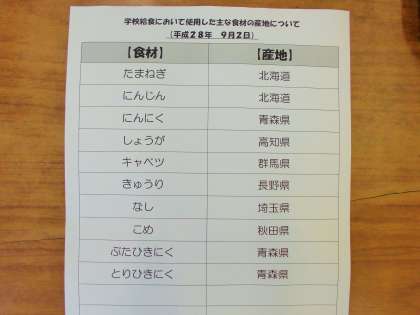 学校給食において使用した主な食材の産地について
(平成28年 9月2日)
【食材】 【産地】
たまねぎ 北海道
にんじん 北海道
にんにく 青森県
しょうが 高知県
キャベツ 群馬県
きゅうり 長野県
なし 埼玉県
こめ 秋田県
ぶたひきにく 青森県
とりひきにく 青森県